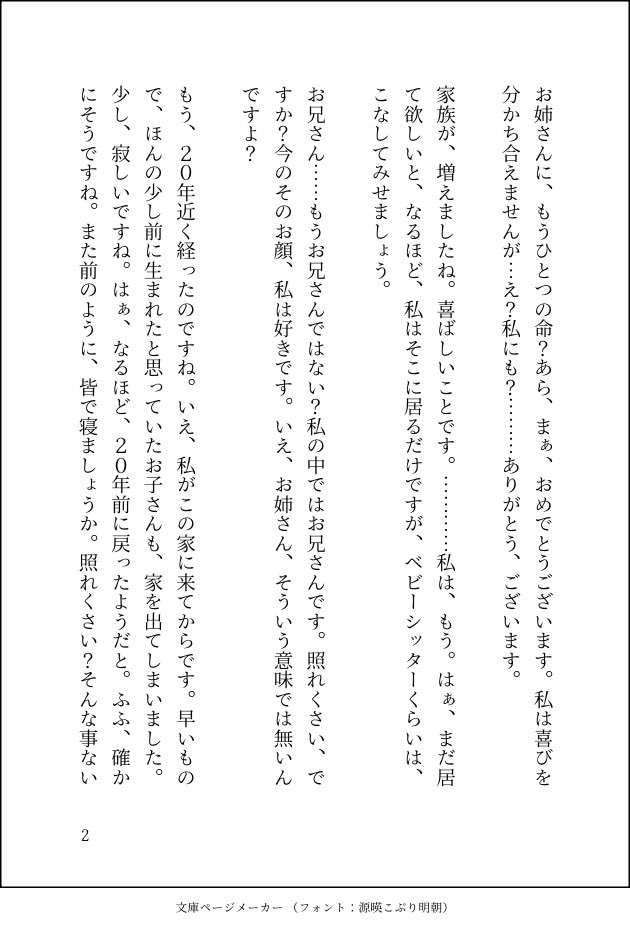 お姉さんに、もうひとつの命？あら、まぁ、おめでとうございます。私は喜びを
分かち合えませんが…え？私にも？…………ありがとう、ございます。
家族が、増えましたね。喜ばしいことです。…………私は、もう。はぁ、まだ居
て欲しいと、なるほど、私はそこに居るだけですが、ベビーシッターくらいは、
こなしてみせましょう。
お兄さん……もうお兄さんではない？私の中ではお兄さんです。照れくさい、で
すか？今のそのお顔、私は好きです。いえ、お姉さん、そういう意味では無いん
ですよ？
もう、２０年近く経ったのですね。いえ、私がこの家に来てからです。早いもの
で、ほんの少し前に生まれたと思っていたお子さんも、家を出てしまいました。
少し、寂しいですね。はぁ、なるほど、２０年前に戻ったようだと。ふふ、確か
にそうですね。また前のように、皆で寝ましょうか。照れくさい？そんな事ない
2
文庫ページメーカー （フォント：源暎こぶり明朝）